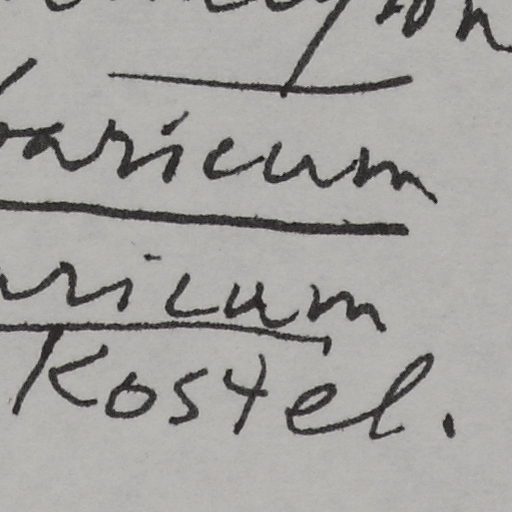 baricum
aricum
Kostel.